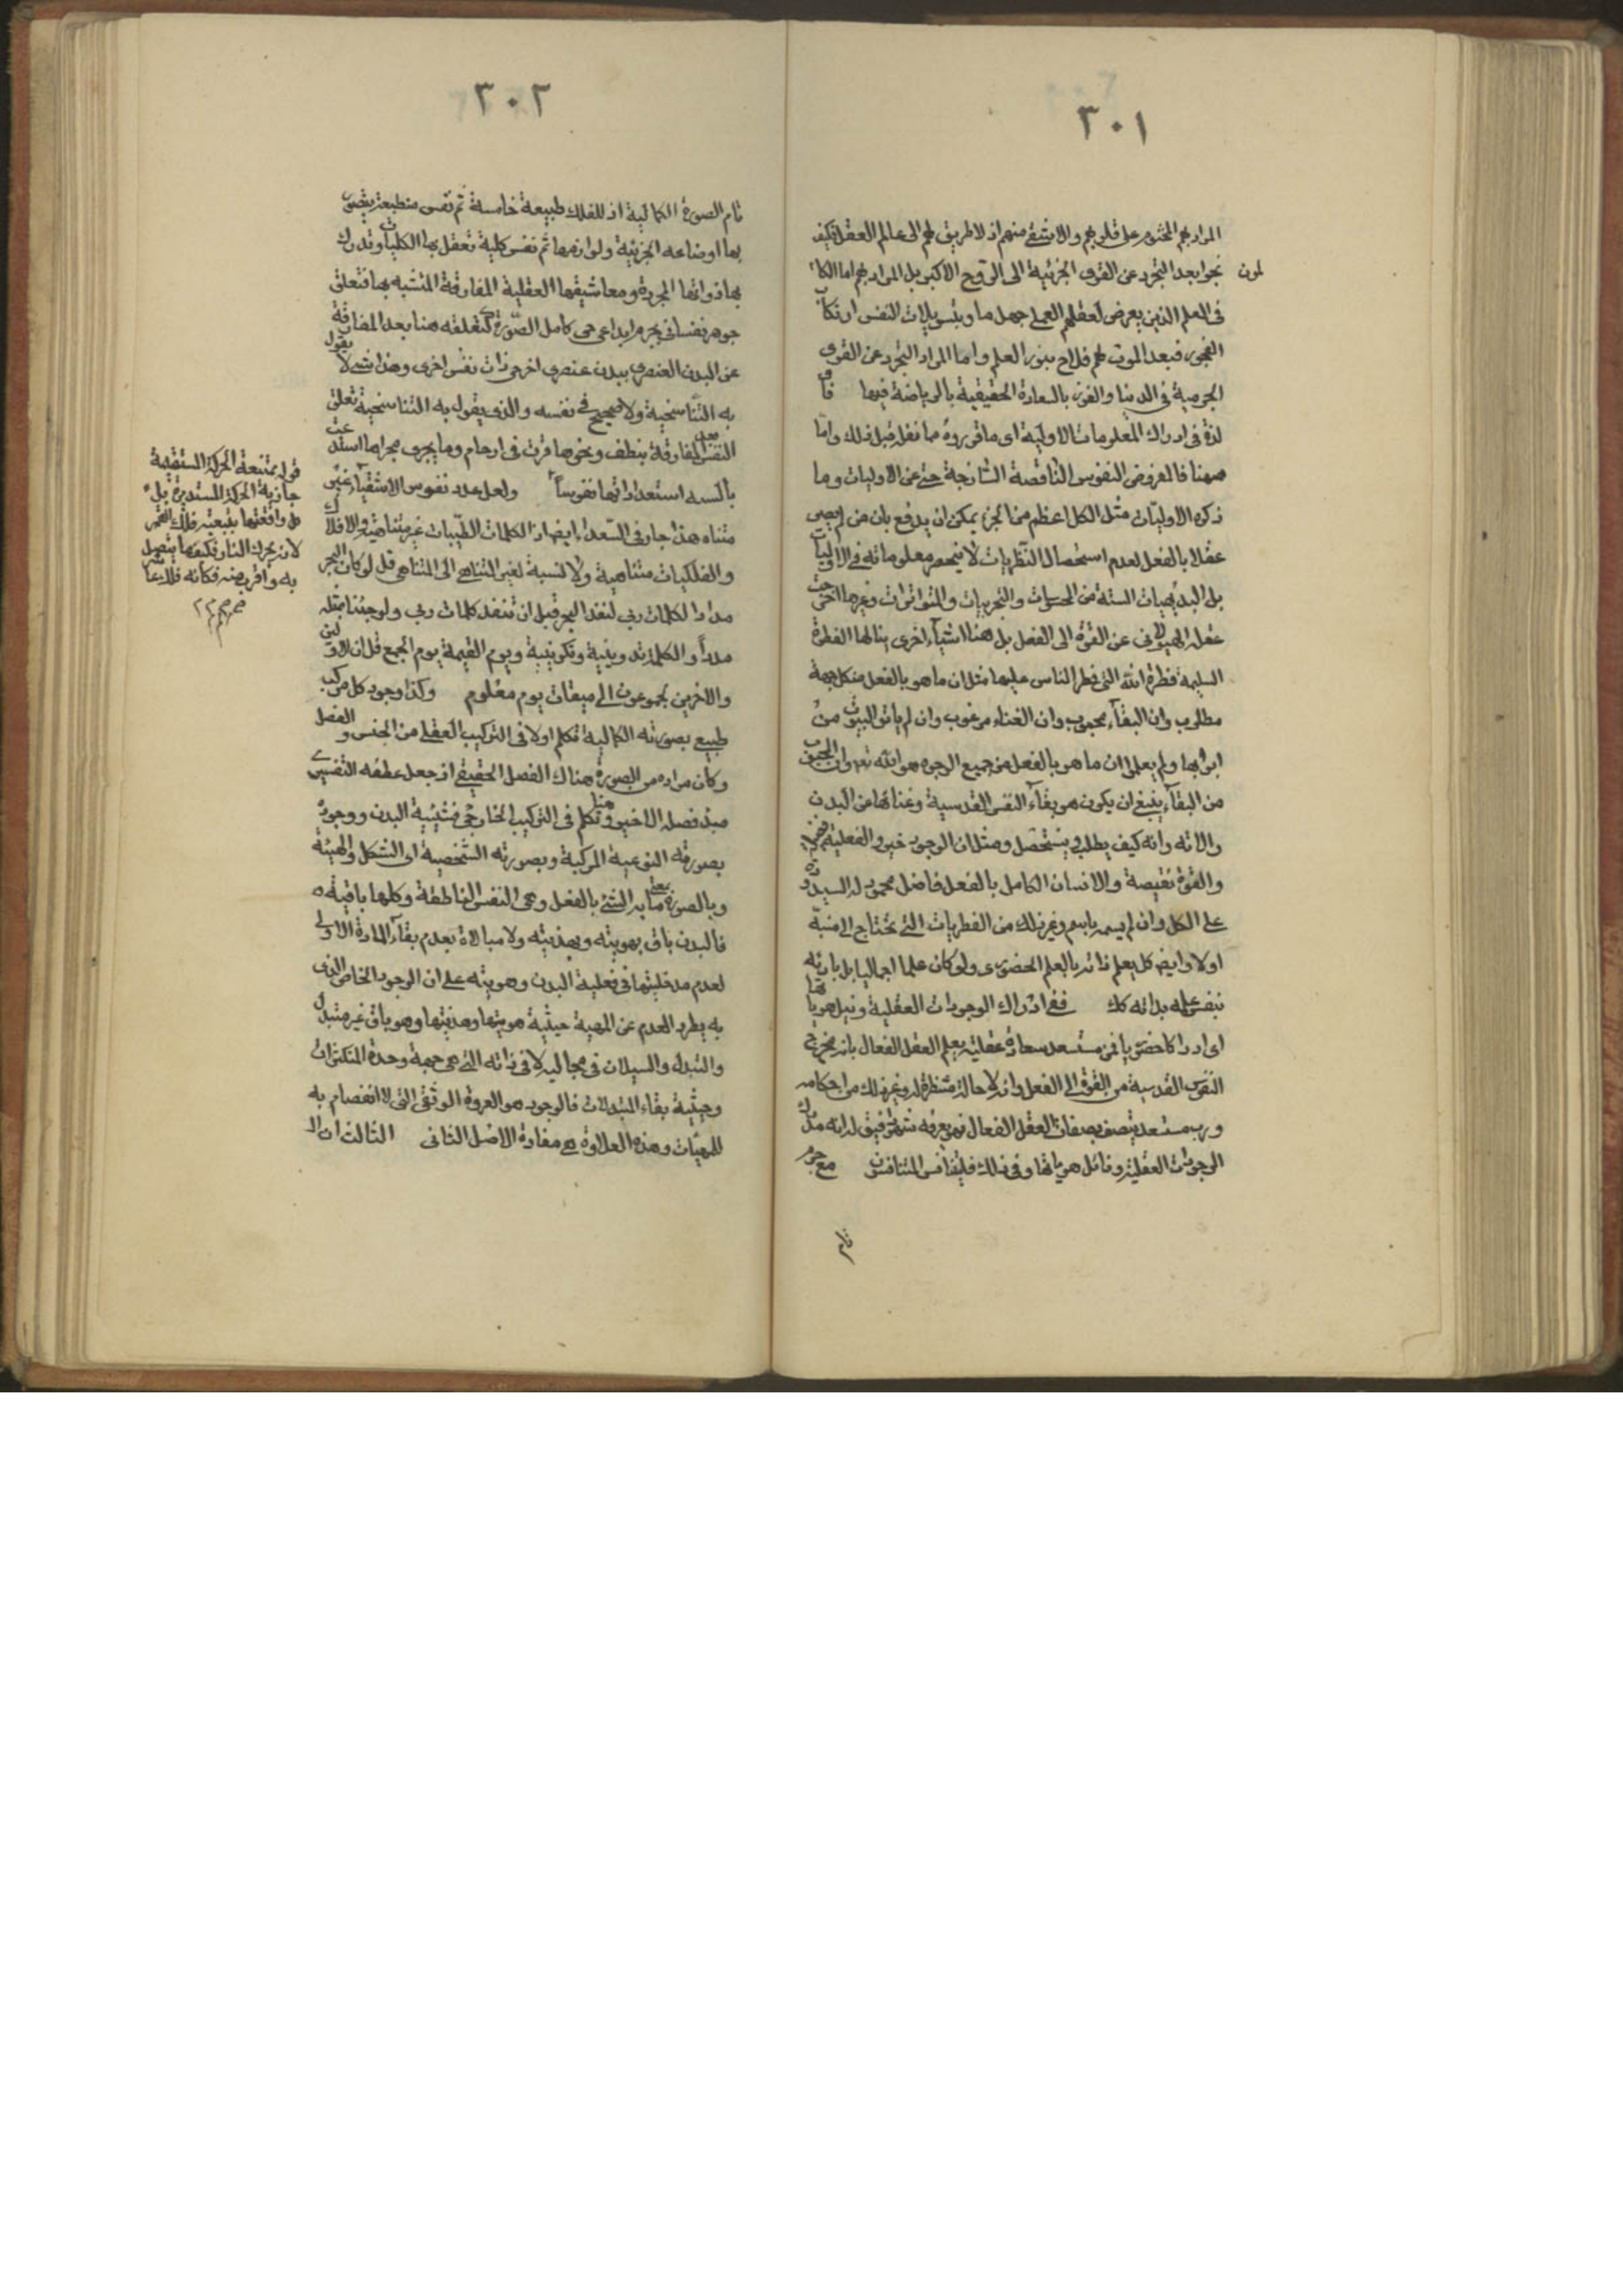 ٣٠١
المراد بهم المختوم على قلوبهم والاشقى منهم اذ لا طريق لهم الى عالم العقل فكيف
نجوا بعد التجرد عن القوى الجزئية الى الروح الاكبر بل المراد بهم اما الكا
ملون
فى العلم الذين يعرض لعقلهم العملى جهل ما وبتسويلات النفس ارتكاب
الفجور فبعد الموت لهم فلاح بنور العلم واما المراد التجرد عن القوى
الجرمية فى الدنيا والفوز بالسعادة الحقيقية بالرياضة فيها
لذة فى ادراك المعلومات الاولية اى ما قوروه مما نقل قبل ذلك واما
ههنا فالمفروض النفوس الناقصة الساذجة حتى عن الاوليات وما
ذكره الاوليات مثل الكل اعظم من الجزء يمكن ان يدفع بان من لم يصر
عقلا بالفعل لعدم استحصال النظريات لا ينحصر معلوماته فى الاوليات
بل البديهيات الستة من الحسيات والتجربيات والمتواترات وغيرها اخرجت
عقله الهيولانى عن القوة الى الفعل بل هنا اشياء اخرى ينالها الفطرة
السليمة فطرة الله التى فطر الناس عليها مثل ان ما هو بالفعل من كل جهة
مطلوب وان البقاء محبوب وان الغناء مرغوب وان لم ياتوا البيوت من
ابوابها ولم يعلموا ان ما هو بالفعل من جميع الوجوه هو الله تعالى وان المحبوب
من البقاء ينبغى ان يكون هو بقاء النفس القدسية وغناءها من البدن
والاته وانه كيف يطلب ويستحصل ومثل ان الوجود خير والفعلية
والقوة نقيصة والانسان الكامل بالفعل فاضل محمود له السيد ودة
على الكل وان لم يسمه باسم وغير ذلك من الفطريات التى تحتاج الى منبه
اولا وايضا كل يعلم ذاته بالعلم الحضورى ولو كان علما اجماليا بل بارئه
بنفس علمه بذاته كك ففى ادراك الوجودات العقلية ونيل هوياتها
اى ادراكا حضوريا فمن مستسعد سعادة عقلية يعلم العقل الفعال بانه مخرج
النفوس القدسية من القوة الى الفعل وانه لا حالة منتظرة له وغير ذلك من احكامه
ورب مستسعد يتصف بصفات العقل الفعال فهو يعرفه لذاته مدرك
الوجودات العقلية ونائل هوياتها وفى ذلك فليتنافس المتنافسون مع جرم
تام
٣٠٢
تام الصورة الكمالية اذ للفلك طبيعة خامسة ثم نفس منطبعة يتصور
بها اوضاعه الجزئية ولوازمها ثم نفس كلية تعقل بها الكليات وتدرك
بها ذواتها المجردة ومعاشيقها العقلية المفارقة المتشبه بها فتعلق
جوهر نفسانى بجرم ابداعى حى كامل الصورة كتعلقه هنا بعد المفارقة
عن البدن العنصرى ببدن عنصرى اخر حى ذات نفس اخرى وهذا شىء لا يقول
به التناسخية ولا صحيح فى نفسه والذى يقول به التناسخية تعلق
النفس المفارقة بنطف ونحوها قرت فى ارحام وما يجرى مجراها
بالسنة استعداداتها نفوسا ولعل عدد نفوس الاشقياء غير
متناه هذا جار فى السعداء ايضا اذ الكلمات الطيبات غير متناهية والافلاك
والفلكيات متناهية ولا نسبة لغير المتناهى الى المتناهى قل لو كان البحر
مدادا لكلمات ربى لنفد البحر قبل ان تنفد كلمات ربى ولو جئنا بمثله
مددا والكلمة تدوينية وتكوينية ويوم القيمة يوم الجمع قل ان الاولين
والاخرين لمجموعون الى ميقات يوم معلوم وكذا وجود كل مركب
طبيعى بصورته الكمالية تكلم اولا فى التركيب العقلى من الجنس والفصل
وكان مراده من الصورة هناك الفصل الحقيقى اذ جعل عطفه التفسيرى
مبدء فصله الاخير وهنا تكلم فى التركيب الخارجى فشيئية البدن ووجوده
بصورته النوعية المركبة وبصورته الشخصية اى الشكل والهيئة
وبالصورة بمعنى ما به الشىء بالفعل وهى النفس الناطقة وكلها باقية
فالبدن باق بهويته وبهذيته ولا مبالاة بعدم بقاء المادة الاولى
لعدم مدخليتها فى فعلية البدن وهويته على ان الوجود الخاص الذى
به يطرد العدم عن المهية حيثية هويتها وهذيتها وهو باق غير متبدل
والتبدل والسيلان فى مجاليه لا فى ذاته التى هى جهة وحدة المتكثرات
وحيثية بقاء المتبدلات فالوجود هو العروة الوثقى التى لا انفصام به
للمهيات وهذه العلاوة هى مفادة الاصل الثانى الثالث ان ال
قوله ممتنعة الحركة المستقيمة
جائزة الحركة المستديرة بل
بتبعية فلك القمر
لان تحرك النار
به